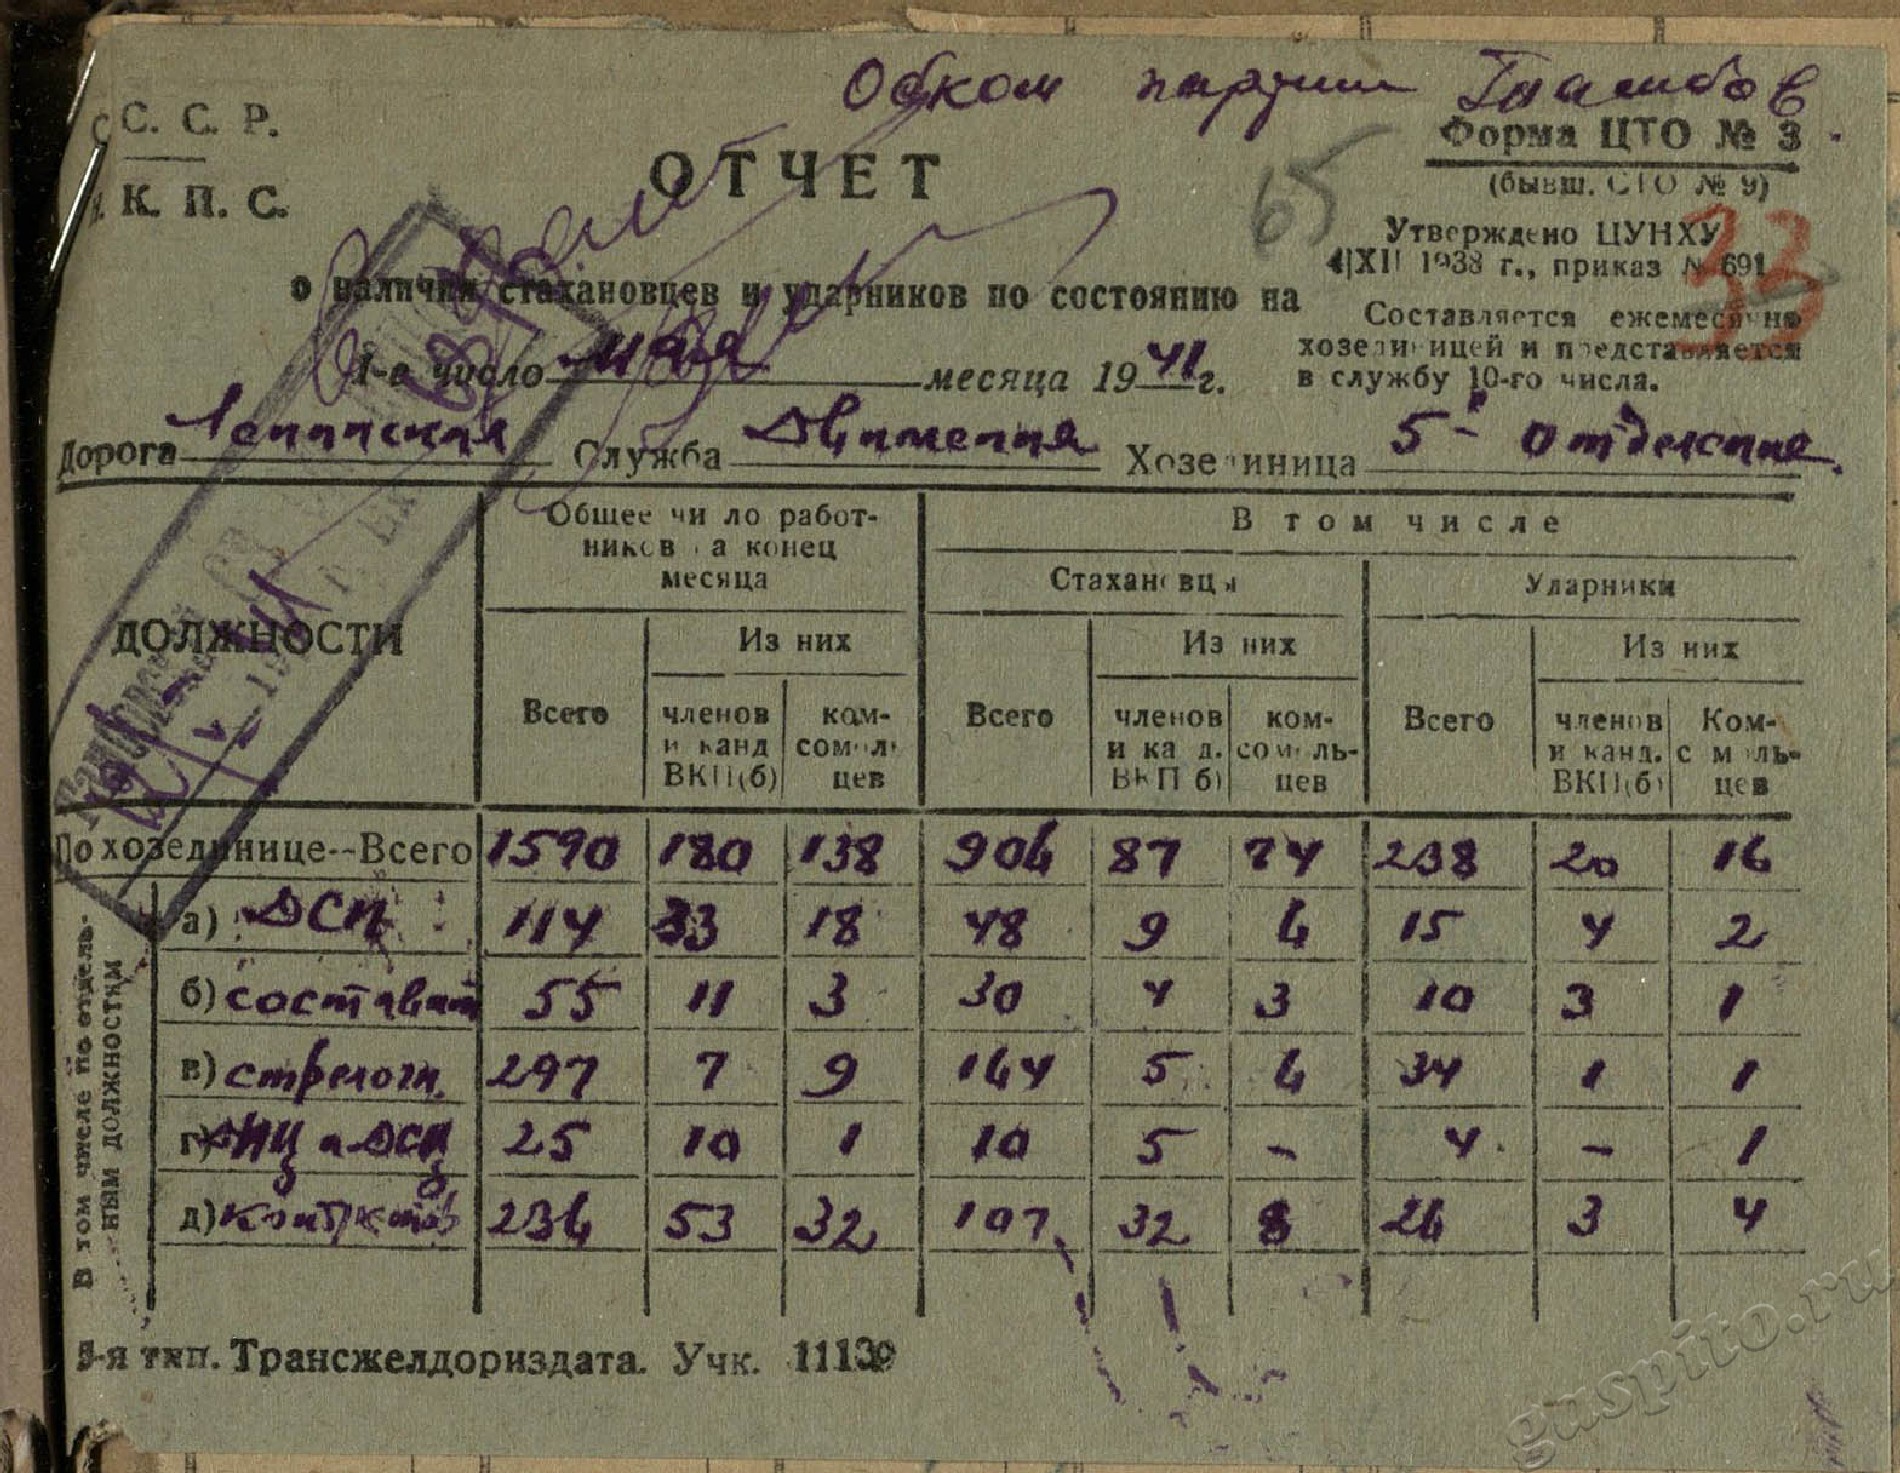 Обком партии Тамбов
С. С. С. Р.
Н. К. П. С.
ОТЧЕТ
65
Форма ЦТО № 3
(бывш. СТО № 9)
33
Утверждено ЦУНХУ
4|XII 1938 г., приказ № 691
о наличии стахановцев и ударников по состоянию на
Составляется ежемесячно
хозединицей и представляется
в службу 10-го числа.
1-е число мая месяца 1941 г.
Дорога Ленинская Служба Движения Хозединица 5е отделение
ДОЛЖНОСТИ
Общее число работ-
ников на конец
месяца
В том числе
Стахановцы
Ударники
Из них
Из них
Из них
Всего
членов
и канд
ВКП(б)
ком-
сомоль-
цев
Всего
членов
и канд.
ВКП(б)
ком-
сомоль-
цев
Всего
членов
и канд.
ВКП(б)
Ком-
сомоль-
цев
По хозединице--Всего 1590 180 138 906 87 74 238 20 16
В том числе по отдель-
ным должностям
а) ДСП 114 33 18 48 9 6 15 4 2
б) составит 55 11 3 30 4 3 10 3 1
в) стрелочн. 297 7 9 164 5 6 34 1 1
г) ДНЦ и ДСЦ 25 10 1 10 5 - 4 - 1
д) кондукторов 236 53 32 107 32 8 26 3 4
3-я тип. Трансжелдориздата. Учк. 11139
gaspito.ru